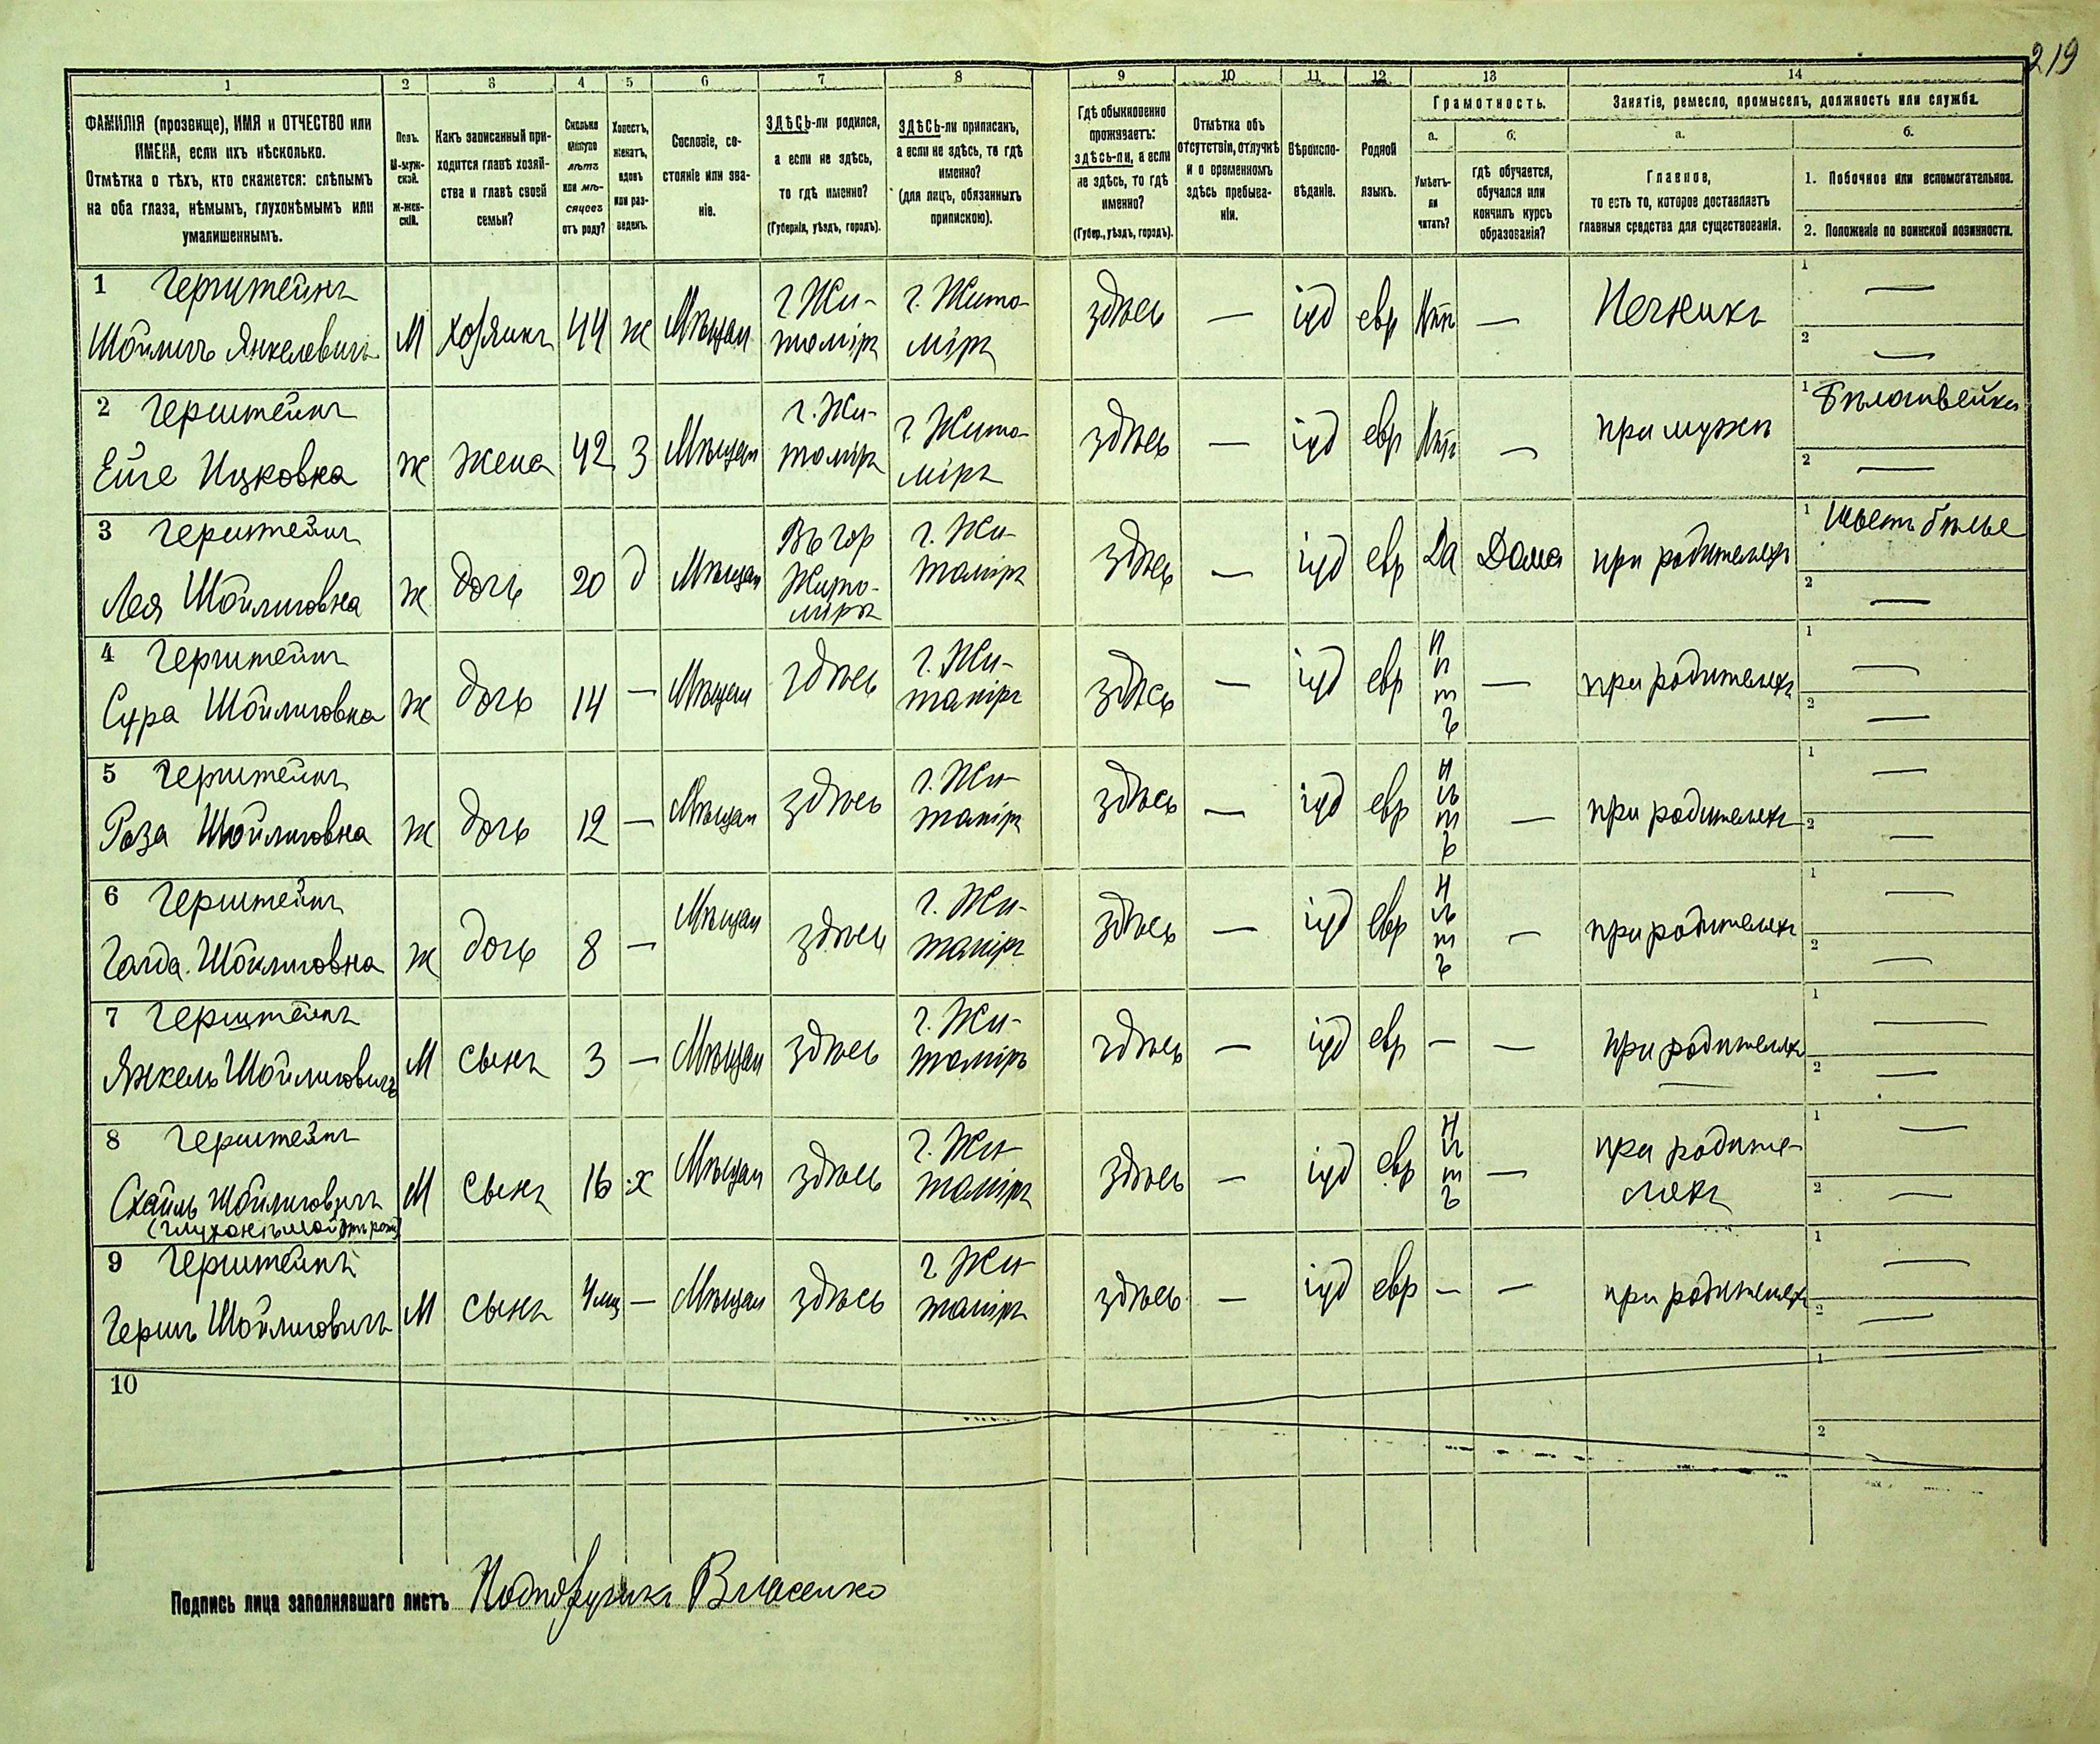 219
1 2 3 4 5 6 7 8 9 10 11 12 13 14
ФАМИЛІЯ (прозвище), ИМЯ и ОТЧЕСТВО или
ИМЕНА, если ихъ нѣсколько.
Отмѣтка о тѣхъ, кто скажется: слѣпымъ
на оба глаза, нѣмымъ, глухонѣмымъ или
умалишеннымъ.
Полъ.
М-муж-
ской.
Ж-жен-
скій.
Какъ записанный при-
ходится главѣ хозяй-
ства и главѣ своей
семьи?
Сколько
минуло
лѣтъ
или мѣ-
сяцевъ
отъ роду?
Холостъ,
женатъ,
вдовъ
или раз-
веденъ.
Сословіе, со-
стояніе или зва-
ніе.
ЗДѢСЬ-ли родился,
а если не здѣсь,
то гдѣ именно?
(Губернія, уѣздъ, городъ).
ЗДѢСЬ-ли приписанъ,
а если не здѣсь, то гдѣ
именно?
(для лицъ, обязанныхъ
припискою).
Гдѣ обыкновенно
проживаетъ:
здѣсь-ли, а если
не здѣсь, то гдѣ
именно?
(Губер., уѣздъ, городъ).
Отмѣтка объ
отсутствіи, отлучкѣ
и о временномъ
здѣсь пребыва-
ніи.
Вѣроиспо-
вѣданіе.
Родной
языкъ.
Грамотность.
а.
Умѣетъ-
ли
читать?
б.
гдѣ обучается,
обучался или
кончилъ курсъ
образованія?
Занятіе, ремесло, промыселъ, должность или служба.
а.
Главное,
то есть то, которое доставляетъ
главныя средства для существованія.
б.
1. Побочное или вспомогательное.
2. Положеніе по воинской повинности.
1 Герштейнъ
Шойлигъ Янкелевичъ М хозяинъ 44 ж Мѣщан г Жи-
томіръ г. Жито-
міръ здѣсь — іуд евр Нѣтъ — Печникъ 1 —
2 —
2 Герштейнъ
Ицковна ж жена 42 З Мѣщан г. Жи-
томіръ г. Жито-
міръ здѣсь — іуд евр Нѣтъ — при мужѣ 1 Бѣлошвейка
2 —
3 Герштейнъ
Лея Шойлиговна ж дочь 20 д Мѣщан Въ гор
Жито-
мірѣ г. Жи-
томіръ здѣсь — іуд евр Да Дома при родителяхъ 1 Шьетъ бѣлье
2 —
4 Герштейнъ
Сура Шойлиговна ж дочь 14 — Мѣщан здѣсь г. Жи-
томіръ здѣсь — іуд евр Нѣтъ — при родителяхъ 1 —
2 —
5 Герштейнъ
Роза Шойлиговна ж дочь 12 — Мѣщан здѣсь г. Жи-
томіръ здѣсь — іуд евр Нѣтъ — при родителяхъ 1 —
2 —
6 Герштейнъ
Голда Шойлиговна ж дочь 8 — Мѣщан здѣсь г. Жи-
томіръ здѣсь — іуд евр Нѣтъ — при родителяхъ 1 —
2 —
7 Герштейнъ
Янкель Шойлиговичъ М сынъ 3 — Мѣщан здѣсь г. Жи-
томіръ здѣсь — іуд евр — — при родителяхъ 1 —
2 —
8 Герштейнъ
Шойлиговичъ М сынъ 16 х Мѣщан здѣсь г. Жи-
томіръ здѣсь — іуд евр Нѣтъ — при родите-
ляхъ 1 —
2 —
(глухонѣмой отъ рожд)
9 Герштейнъ
Гершъ Шойлиговичъ М сынъ 4 мц — Мѣщан здѣсь г Жи-
томіръ здѣсь — іуд евр — — при родителяхъ 1 —
2 —
10 1
2
Подпись лица заполнявшаго листъ Подпоручикъ Власенко